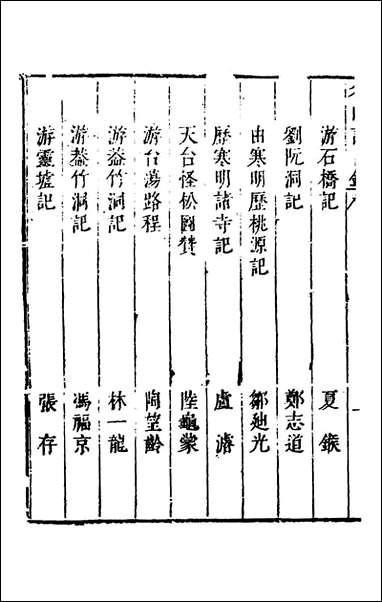 游石橋記 夏鍭
劉阮洞記 鄭志道
由寒明歷桃源記 鄒迪光
歷寒明諸寺記 盧濬
天台怪松圖贊 陸龜蒙
游台蕩路程 陶望齡
游葢竹洞記 林一龍
游葢竹洞記 馮福京
游靈墟記 張存